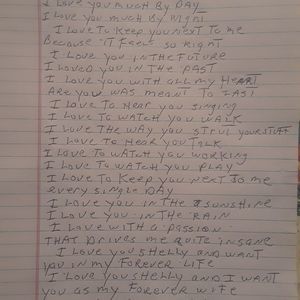 I Love you much By Day
I Love you much By Night
I Love to Keep you Next to me
Because it feels so Right
I Love you in the Future
I Loved you in the Past
I Love you with all my Heart
Are you was meant to Last
I Love to Hear you singing
I Love to Watch you Walk
I Love the way you strut your stuff
I Love to Hear you Talk
I Love to Watch you Working
I Love to Watch you Play
I Love to Keep you Next to me
every single Day
I Love you in the sunshine
I Love you in the Rain
I Love with a Passion
That Drives me quite insane
I Love you Shelly and want
you in my Forever Life
I Love you Shelly and I want
you as my Forever wife